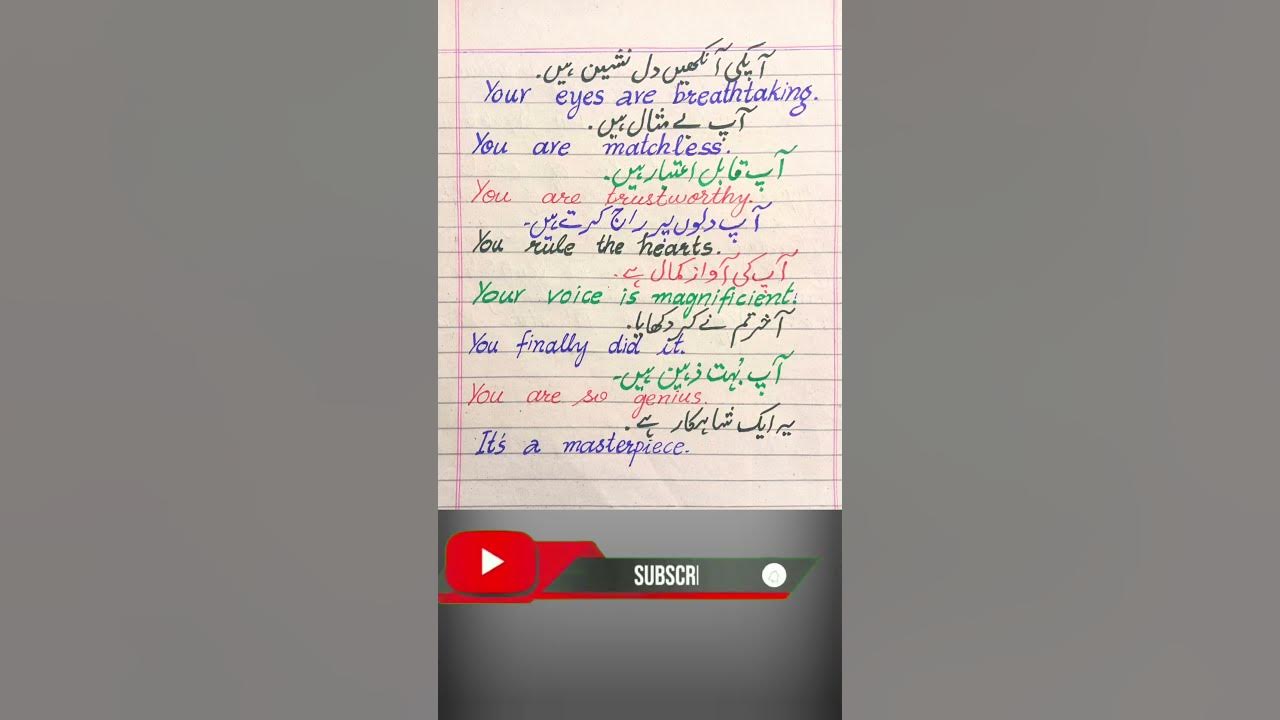 آپکی آنکھیں دل نشین ہیں.
Your eyes are breathtaking.
آپ بے مثال ہیں.
You are matchless.
آپ قابل اعتبار ہیں.
You are trustworthy.
آپ دلوں پر راج کرتے ہیں۔
You rule the hearts.
آپ کی آواز کمال ہے.
Your voice is magnificient.
آخر تم نے کر دکھایا.
You finally did it.
آپ بُہت ذہین ہیں۔
You are so genius.
یہ ایک شاہکار ہے.
It's a masterpiece.
SUBSCRI